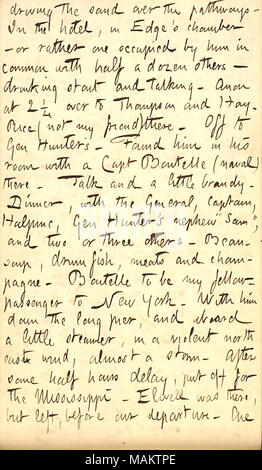 driving the sand over the pathways —
In the hotel, in Edge's chamber
— or rather one occupied by him in
common with half a dozen others —
drinking stout and talking — Anon
at 2 1/4 over to Thompson and Hay.
Price (not my friend) there — Off to
Gen Hunter's — Found him in his
room with a Capt Boutelle (naval)
there — Talk and a little brandy —
Dinner, with the General, Captain,
Halpine, Gen Hunter's nephew "Sam",
and two or three others — Bean-
soup, drumfish, meats and cham-
pagne — Boutelle to be my fellow
passenger to New York — With him
down the long pier, and aboard
a little steamer, in a violent north
easter wind, almost a storm — After
some half hours delay, put off for
the Mississippi — Elwell was there,
but left before our departure — One
alamy
Image ID: MAKTPE
www.alamy.com